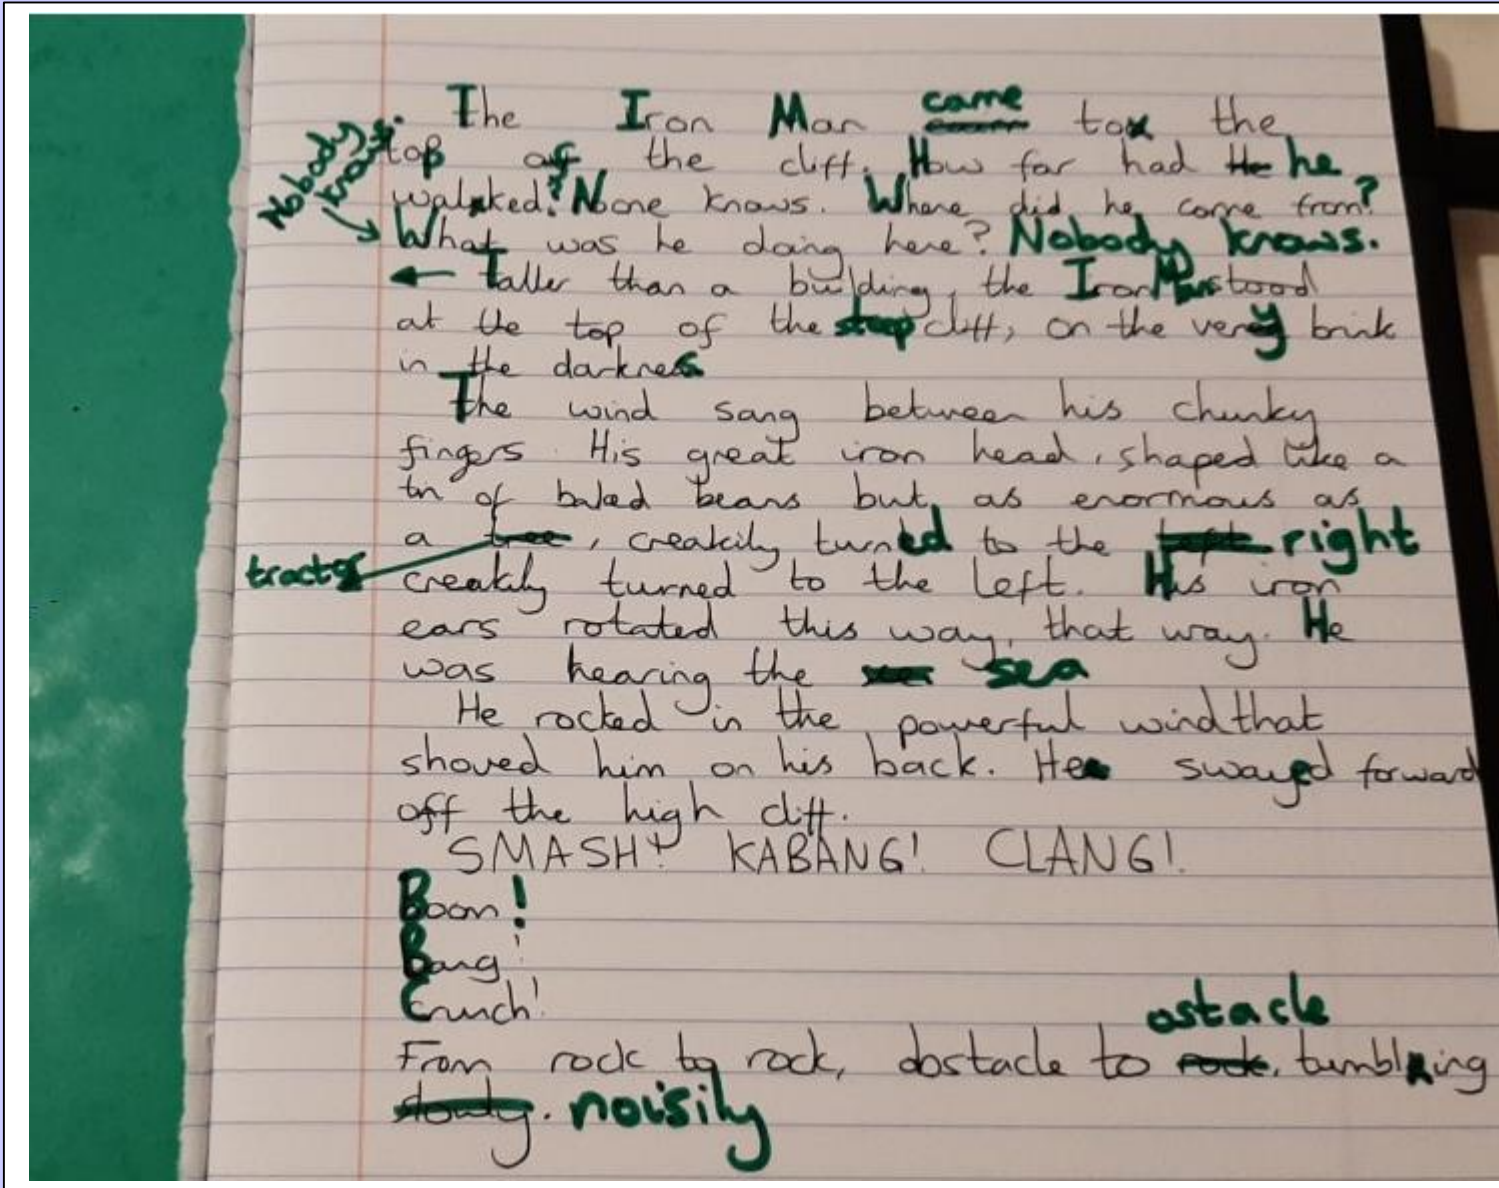 The Iron Man came to the
Nobody knows.
top of the cliff. How far had he
walked? None knows. Where did he come from?
What was he doing here? Nobody knows.
taller than a building, the Iron Man stood
at the top of the steep cliff, on the very brink
in the darkness
The wind sang between his chunky
fingers. His great iron head, shaped like a
tin of baked beans but, as enormous as
a tree, creakily turned to the right
tractor
creakily turned to the left. His iron
ears rotated this way, that way. He
was hearing the sea
He rocked in the powerful wind that
shoved him on his back. He swayed forward
off the high cliff.
SMASH! KABANG! CLANG!
Boom!
Bang!
Crunch!
ostacle
From rock to rock, obstacle to rock, tumbling
slowly. noisily